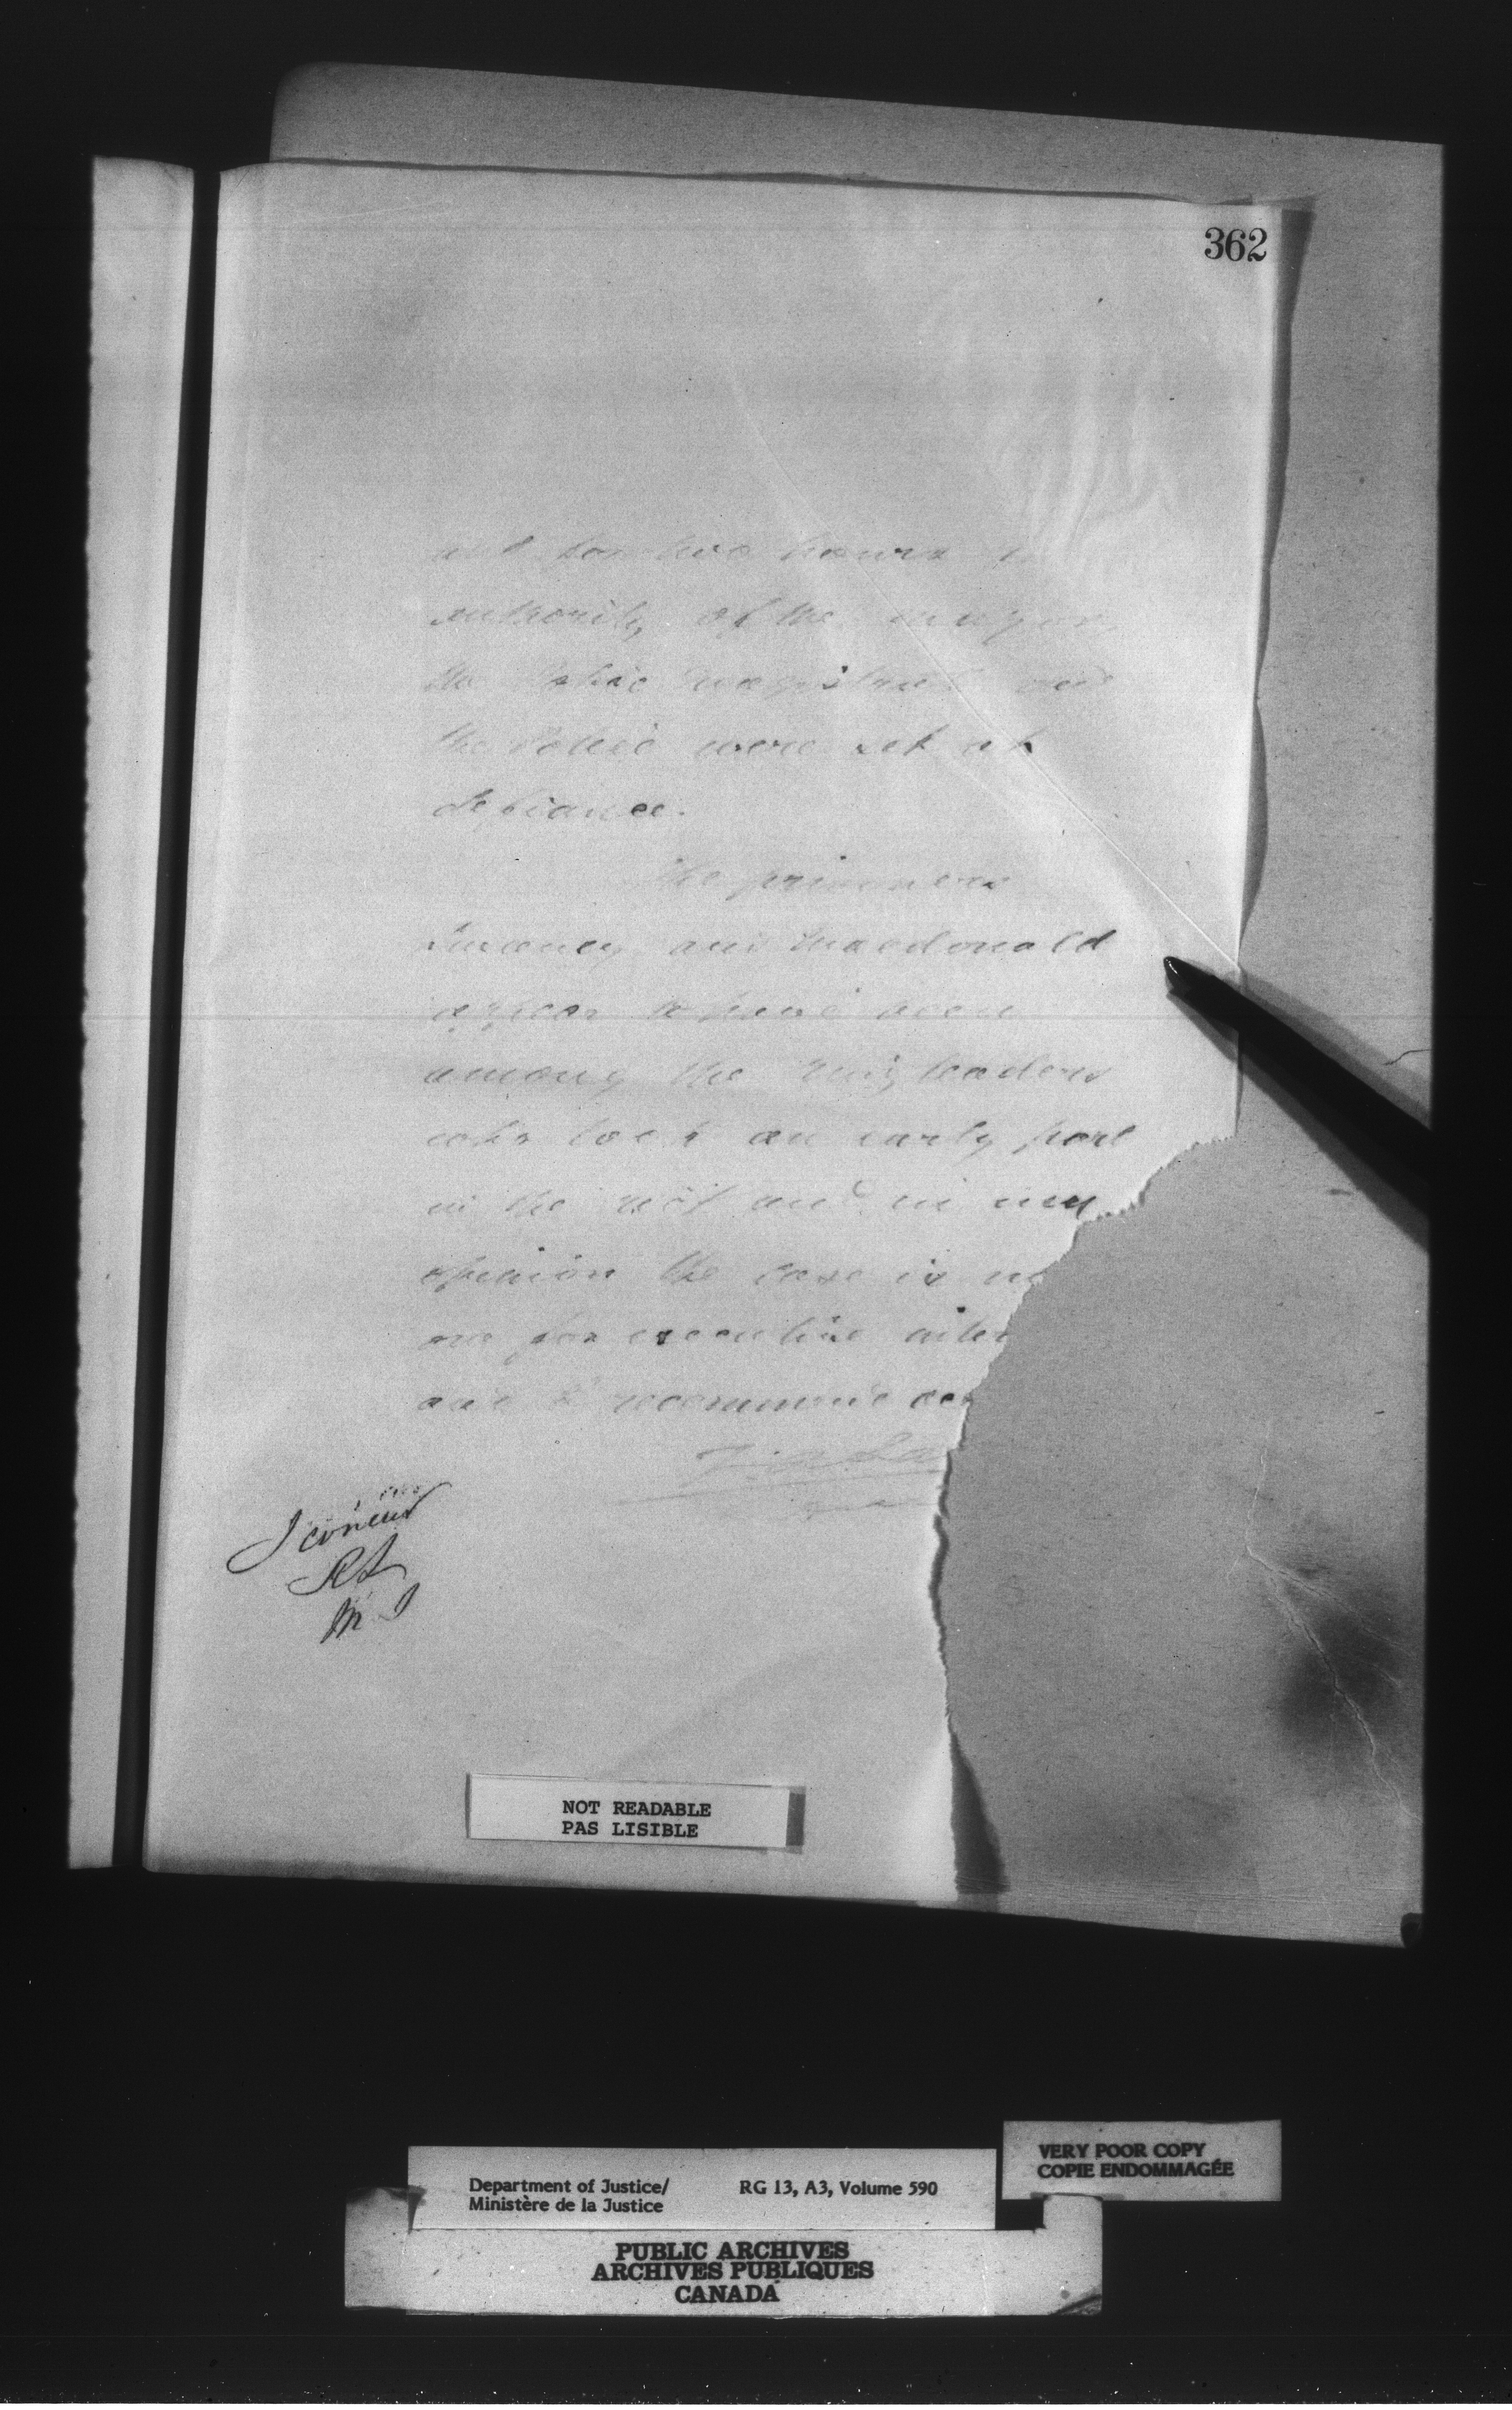 362
and for two hours
authority of the mayor
the Police magistrate and
the Police were set at
defiance.
The prisoners
Sweeney and Macdonald
appear to have been
among the ringleaders
who took an early part
in the riot and in my
opinion the case is no
one for executive inter
and I recommend
I concur
RL
MJ
NOT READABLE
PAS LISIBLE
VERY POOR COPY
COPIE ENDOMMAGÉE
Department of Justice/ RG 13, A3, Volume 590
Ministère de la Justice
PUBLIC ARCHIVES
ARCHIVES PUBLIQUES
CANADA